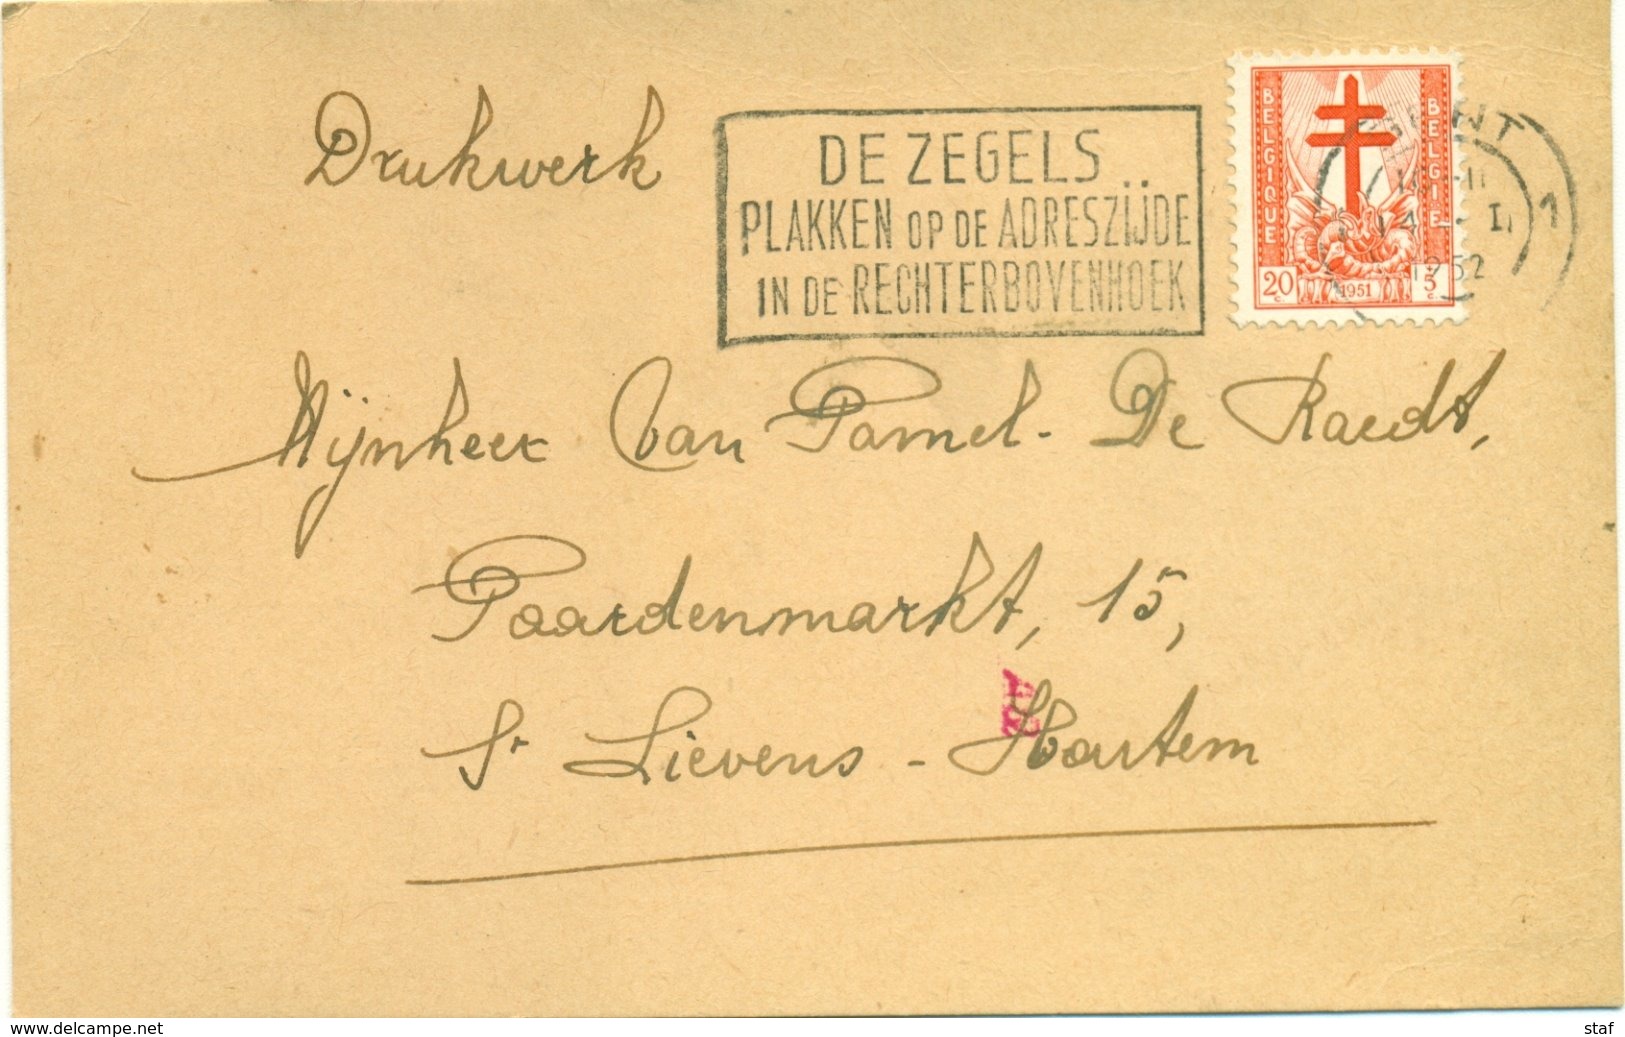 Drukwerk
DE ZEGELS
PLAKKEN OP DE ADRESZIJDE
IN DE RECHTERBOVENHOEK
BELGIQUE
BELGIE
20 c. 1951 5 c.
GENT 1
1952
Mijnheer Van Pamel - De Raedt,
Paardenmarkt, 15,
St Lievens - Houtem
www.delcampe.net
staf